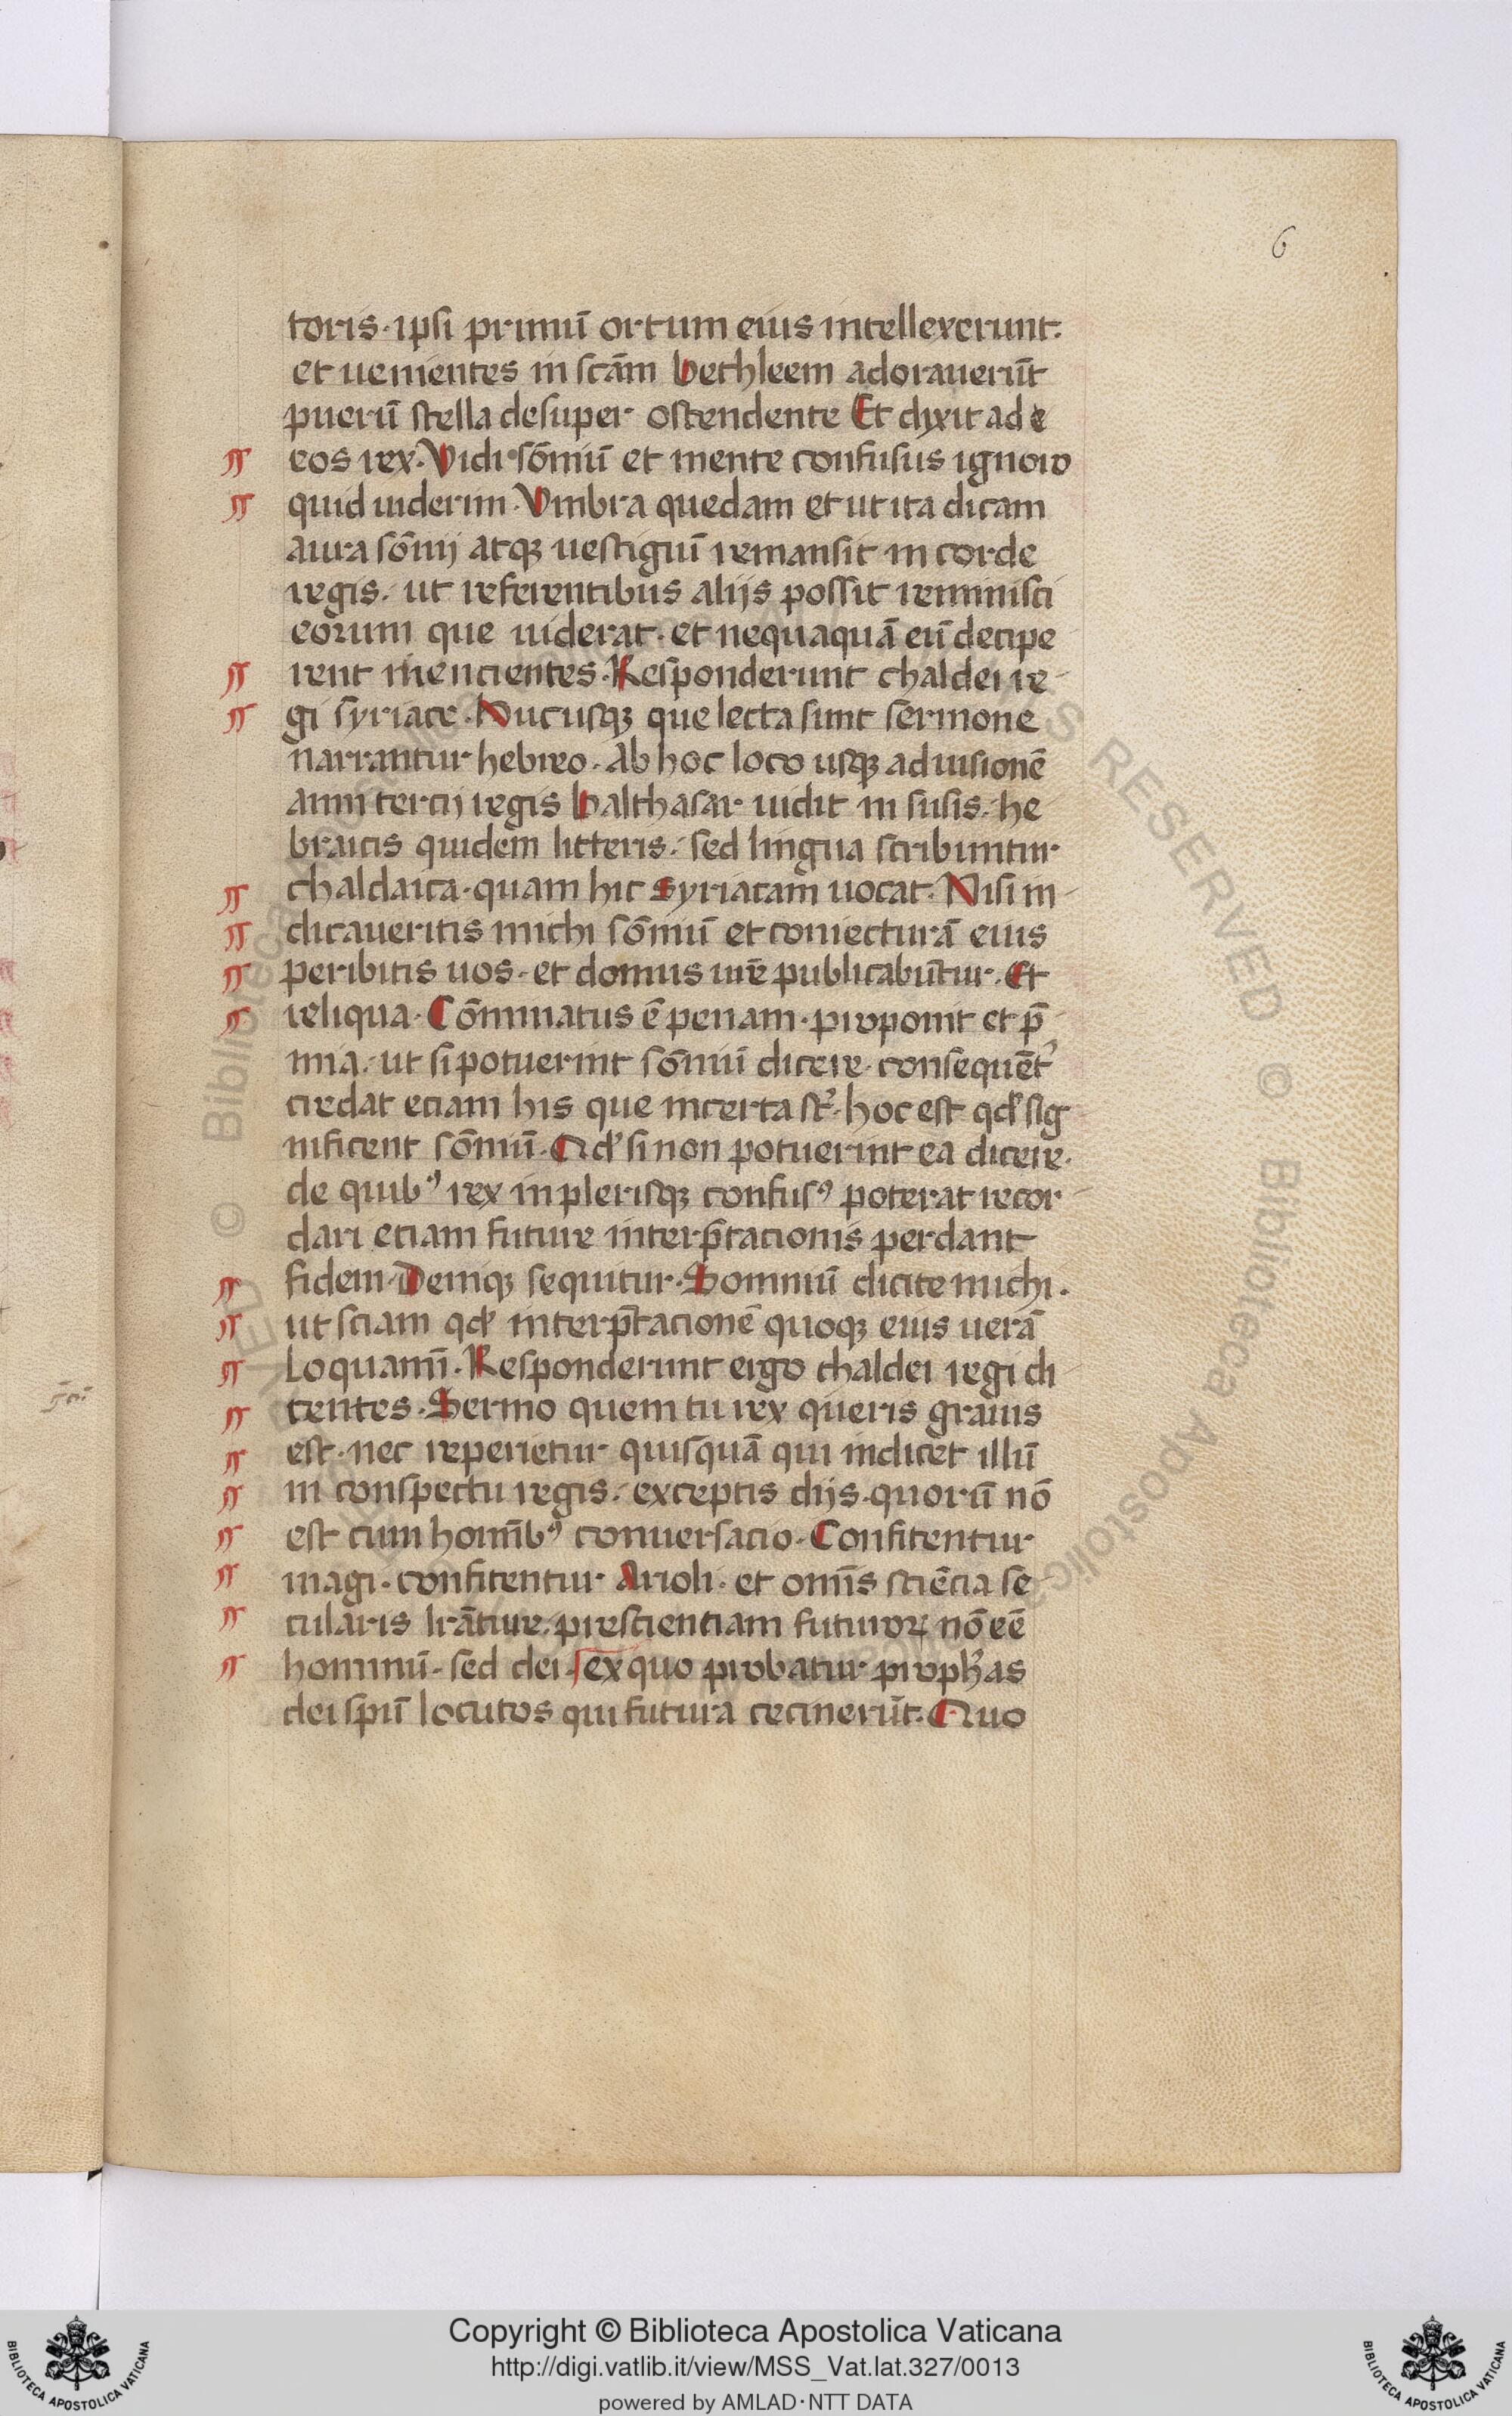 6
toris. ipsi primū ortum eius intellexerunt.
et uenientes in scām bethleem adorauerūt
puerū stella desuper ostendente Et dixit ad e
eos rex. Vidi sōmiū et mente confusus ignoro
quid uiderim. Vmbra quedam et ut ita dicam
aura sōmij atqꝫ uestigiū remansit in corde
regis. ut referentibus alijs possit reminisci
eorum que uiderat. et nequaquā eū decipe
rent mencientes. Responderunt chaldei re
gi syriace. Hucusqꝫ que lecta sunt sermone
narrantur hebreo. Ab hoc loco usqꝫ ad uisionē
anni tercij regis balthasar uidit in susis. he
braicis quidem litteris. sed lingua scribuntur
chaldaica. quam hic Syriacam uocat. Nisi in
dicaueritis michi sōmiū et coniecturā eius
peribitis uos. et domus ur̄e publicabūtur. Et
reliqua. Cōminatus ē penam. proponit et p̄
mia. ut si potuerint sōniū dicere. consequēt᷑
credat eciam his que incerta st᷑. hoc est qđ sig
nificent sōniū. Qđ si non potuerint ea dicere.
de quibꝰ rex in plerisqꝫ confusꝰ poterat recor
dari eciam future interp̄tacionis perdant
fidem. Deniqꝫ sequitur. Somniū dicite michi.
ut sciam qđ interp̄tacionē quoqꝫ eius uerā
loquamī. Responderunt ergo chaldei regi di
centes. Sermo quem tu rex queris grauis
est. nec reperietur quisquā qui indicet illū
in conspectu regis. exceptis dijs. quorū nō
est cum homībꝰ conuersacio. Confitentur
magi. confitentur Arioli. et omīs sciēcia se
cularis lrāture. prescientiam futuroꝝ nō eē
hominū. sed dei. ex quo probatur proph̄as
dei spū locutos qui futura cecinerūt. Quo
RESERVED © Biblioteca Apostolica
© Biblioteca
Copyright © Biblioteca Apostolica Vaticana
http://digi.vatlib.it/view/MSS_Vat.lat.327/0013
powered by AMLAD·NTT DATA
BIBLIOTECA APOSTOLICA VATICANA
BIBLIOTECA APOSTOLICA VATICANA